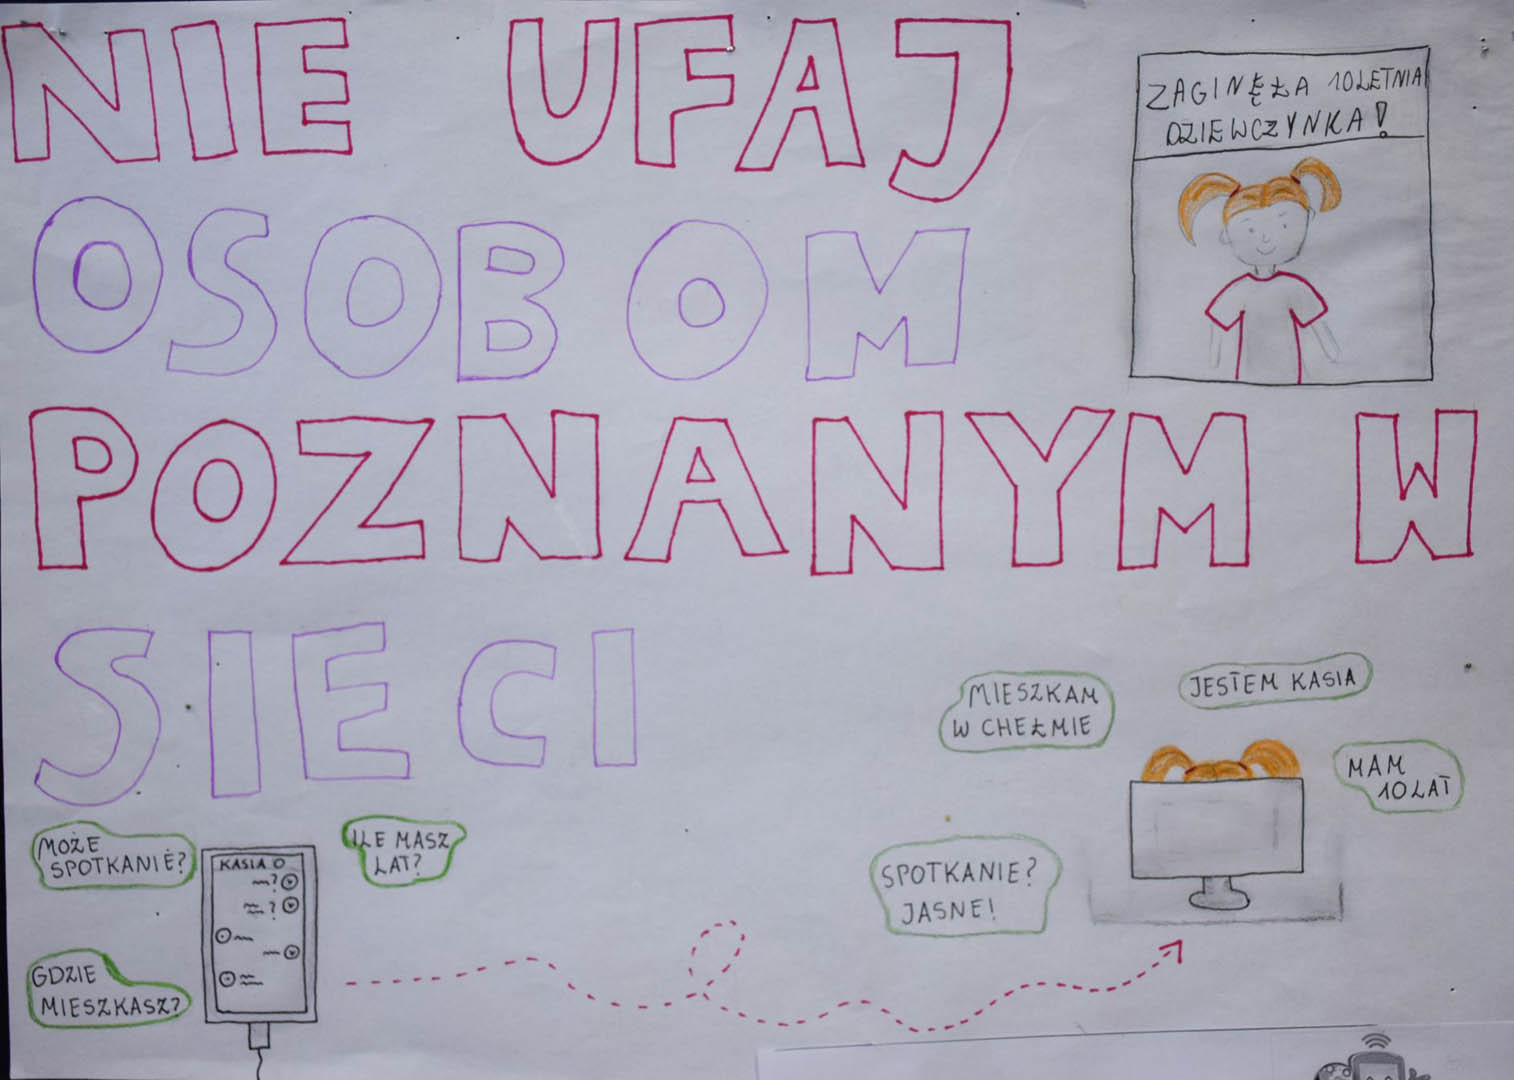 NIE UFAJ
OSOBOM
POZNANYM W
SIECI
ZAGINĘŁA 10LETNIA
DZIEWCZYNKA!
MIESZKAM
W CHEŁMIE
JESTEM KASIA
MAM
10 LAT
SPOTKANIE?
JASNE!
MOŻE
SPOTKANIE?
ILE MASZ
LAT?
GDZIE
MIESZKASZ?
KASIA
?
?